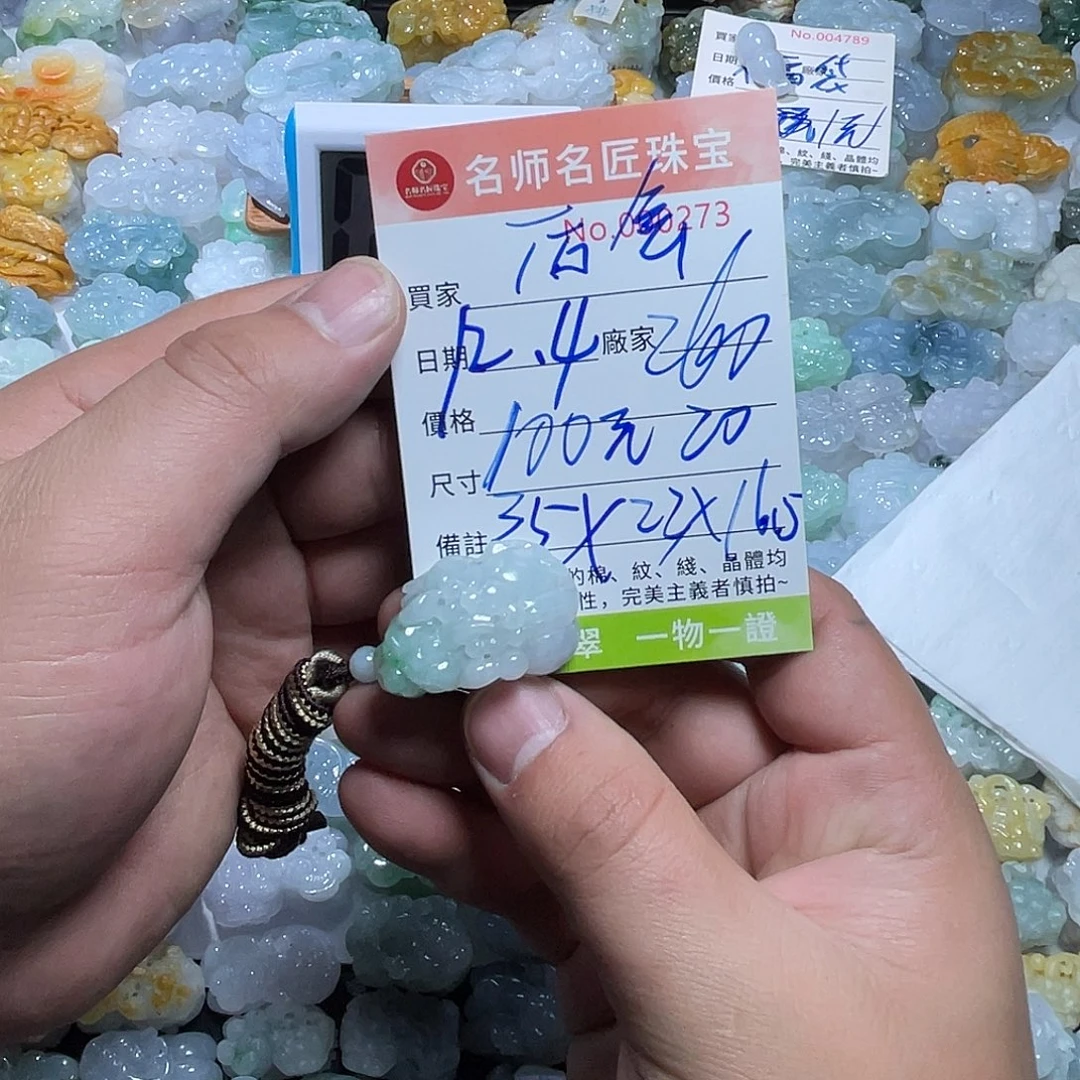 No.004789
買家
日期
廠
袋
價格
1元
、紋、綫、晶體均
完美主義者慎拍~
名师名匠珠宝
No.000273
買家
日期 12.4 廠家 260
價格 100元 20
尺寸 35X23X16.5
備註
的棉、紋、綫、晶體均
性，完美主義者慎拍~
翠 一物一證